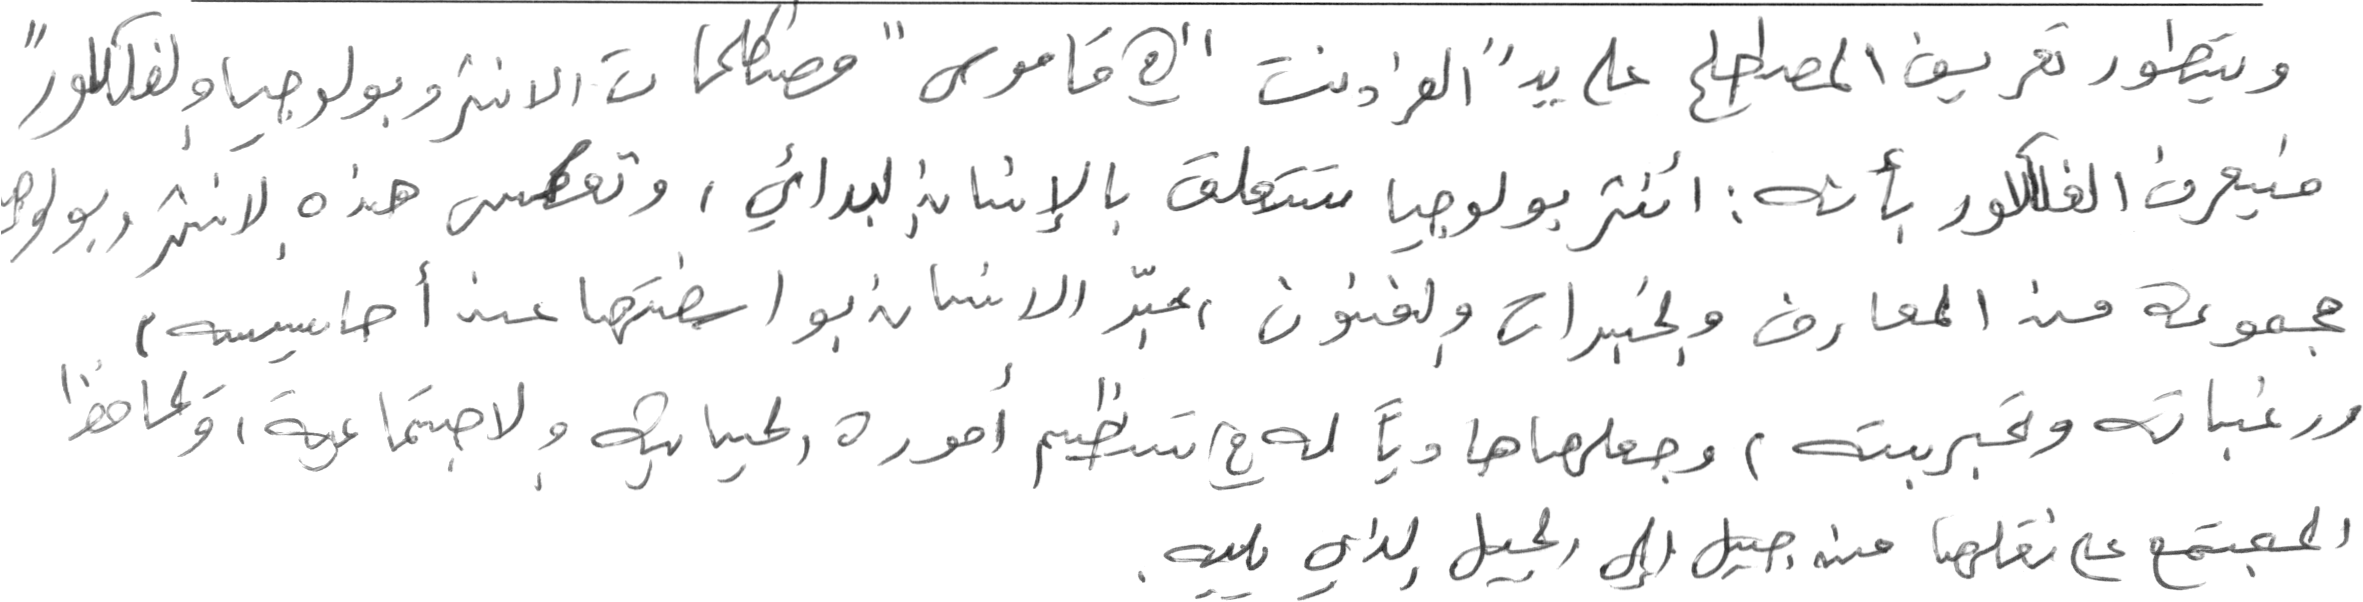 ويتطور تعريف المصطلح على يد "الفردنت" في قاموس "مصطلحات الانثروبولوجيا والفلكلور"
فيعرف الفلكلور بأنه: انثربولوجيا تتعلق بالإنسان البدائي، وتعكس هذه الانثروبولوجيا
مجموعة من المعارف والخبرات والفنون، عبّر الانسان بواسطتها عن أحاسيسه،
ورغباته وتجربته، وجعلها هادياً له في تنظيم أموره الحياتية والاجتماعية، وتحافظ
المجتمع على نقلها من جيل إلى الجيل الذي يليه.